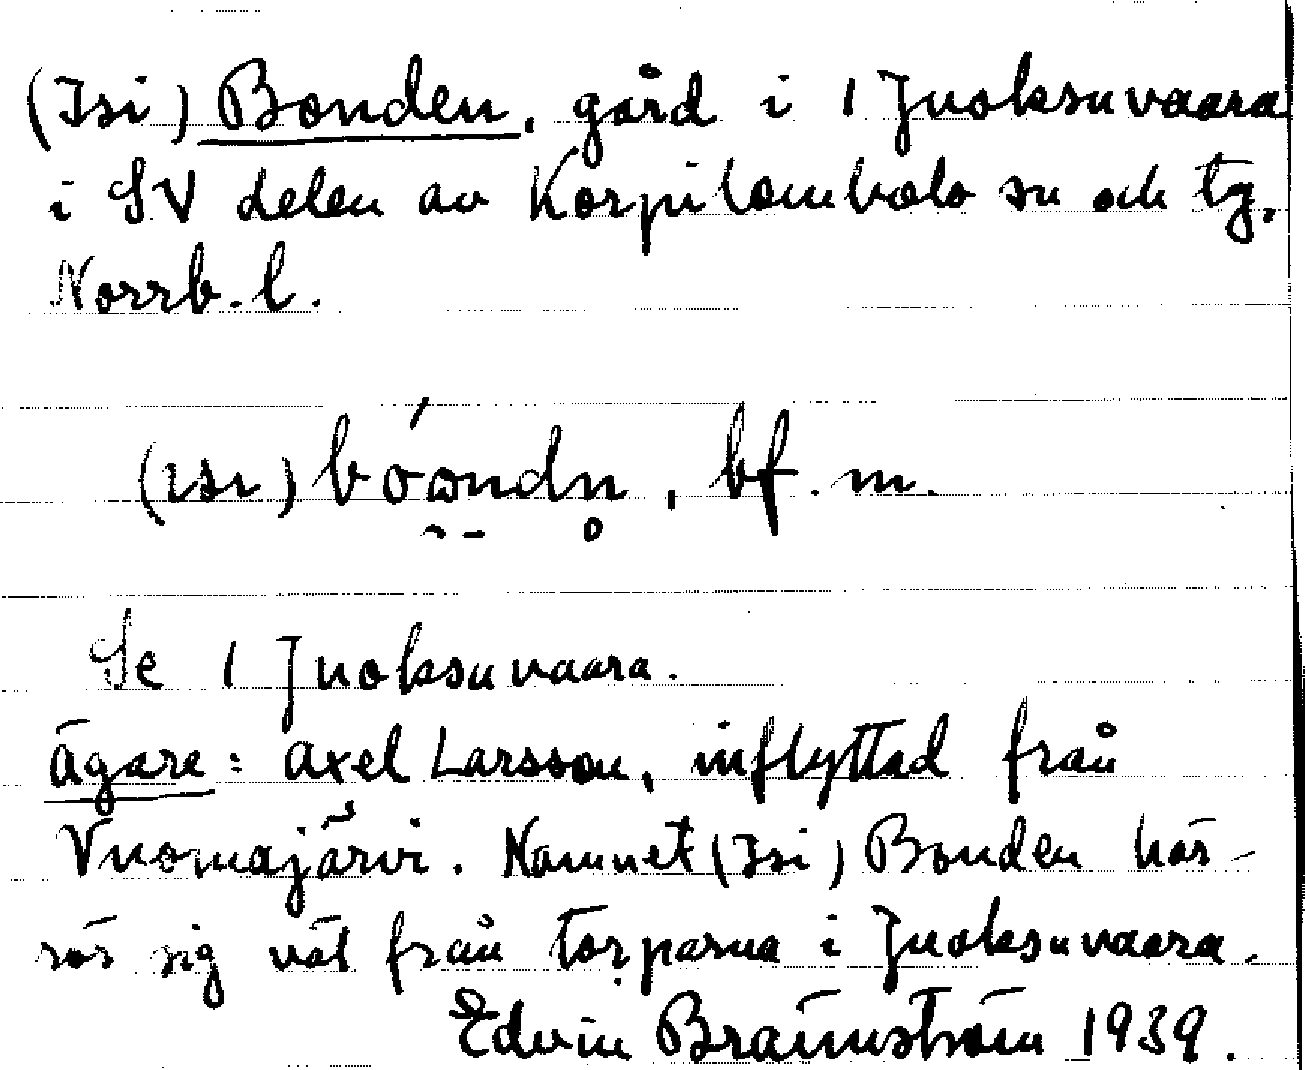 (Isi) Bonden, gård i 1 Juoksuvaara
i SV delen av Korpilombolo sn och tg,
Norrb. l.
(ısı) bówndn̥, bf. m.
Se 1 Juoksuvaara.
Ägare: Axel Larsson, inflyttad från
Vuomajärvi. Namnet (Isi) Bonden här-
rör sig väl från torparna i Juoksuvaara.
Edvin Brännström 1939.